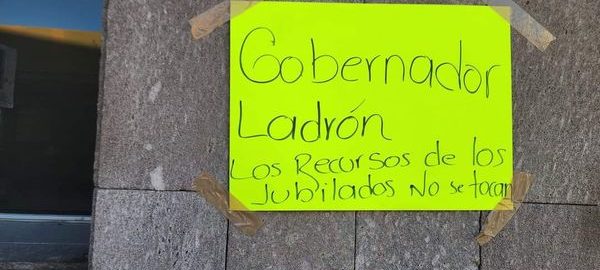 Gobernador
Ladrón
Los Recursos de los
Jubilados No se tocan